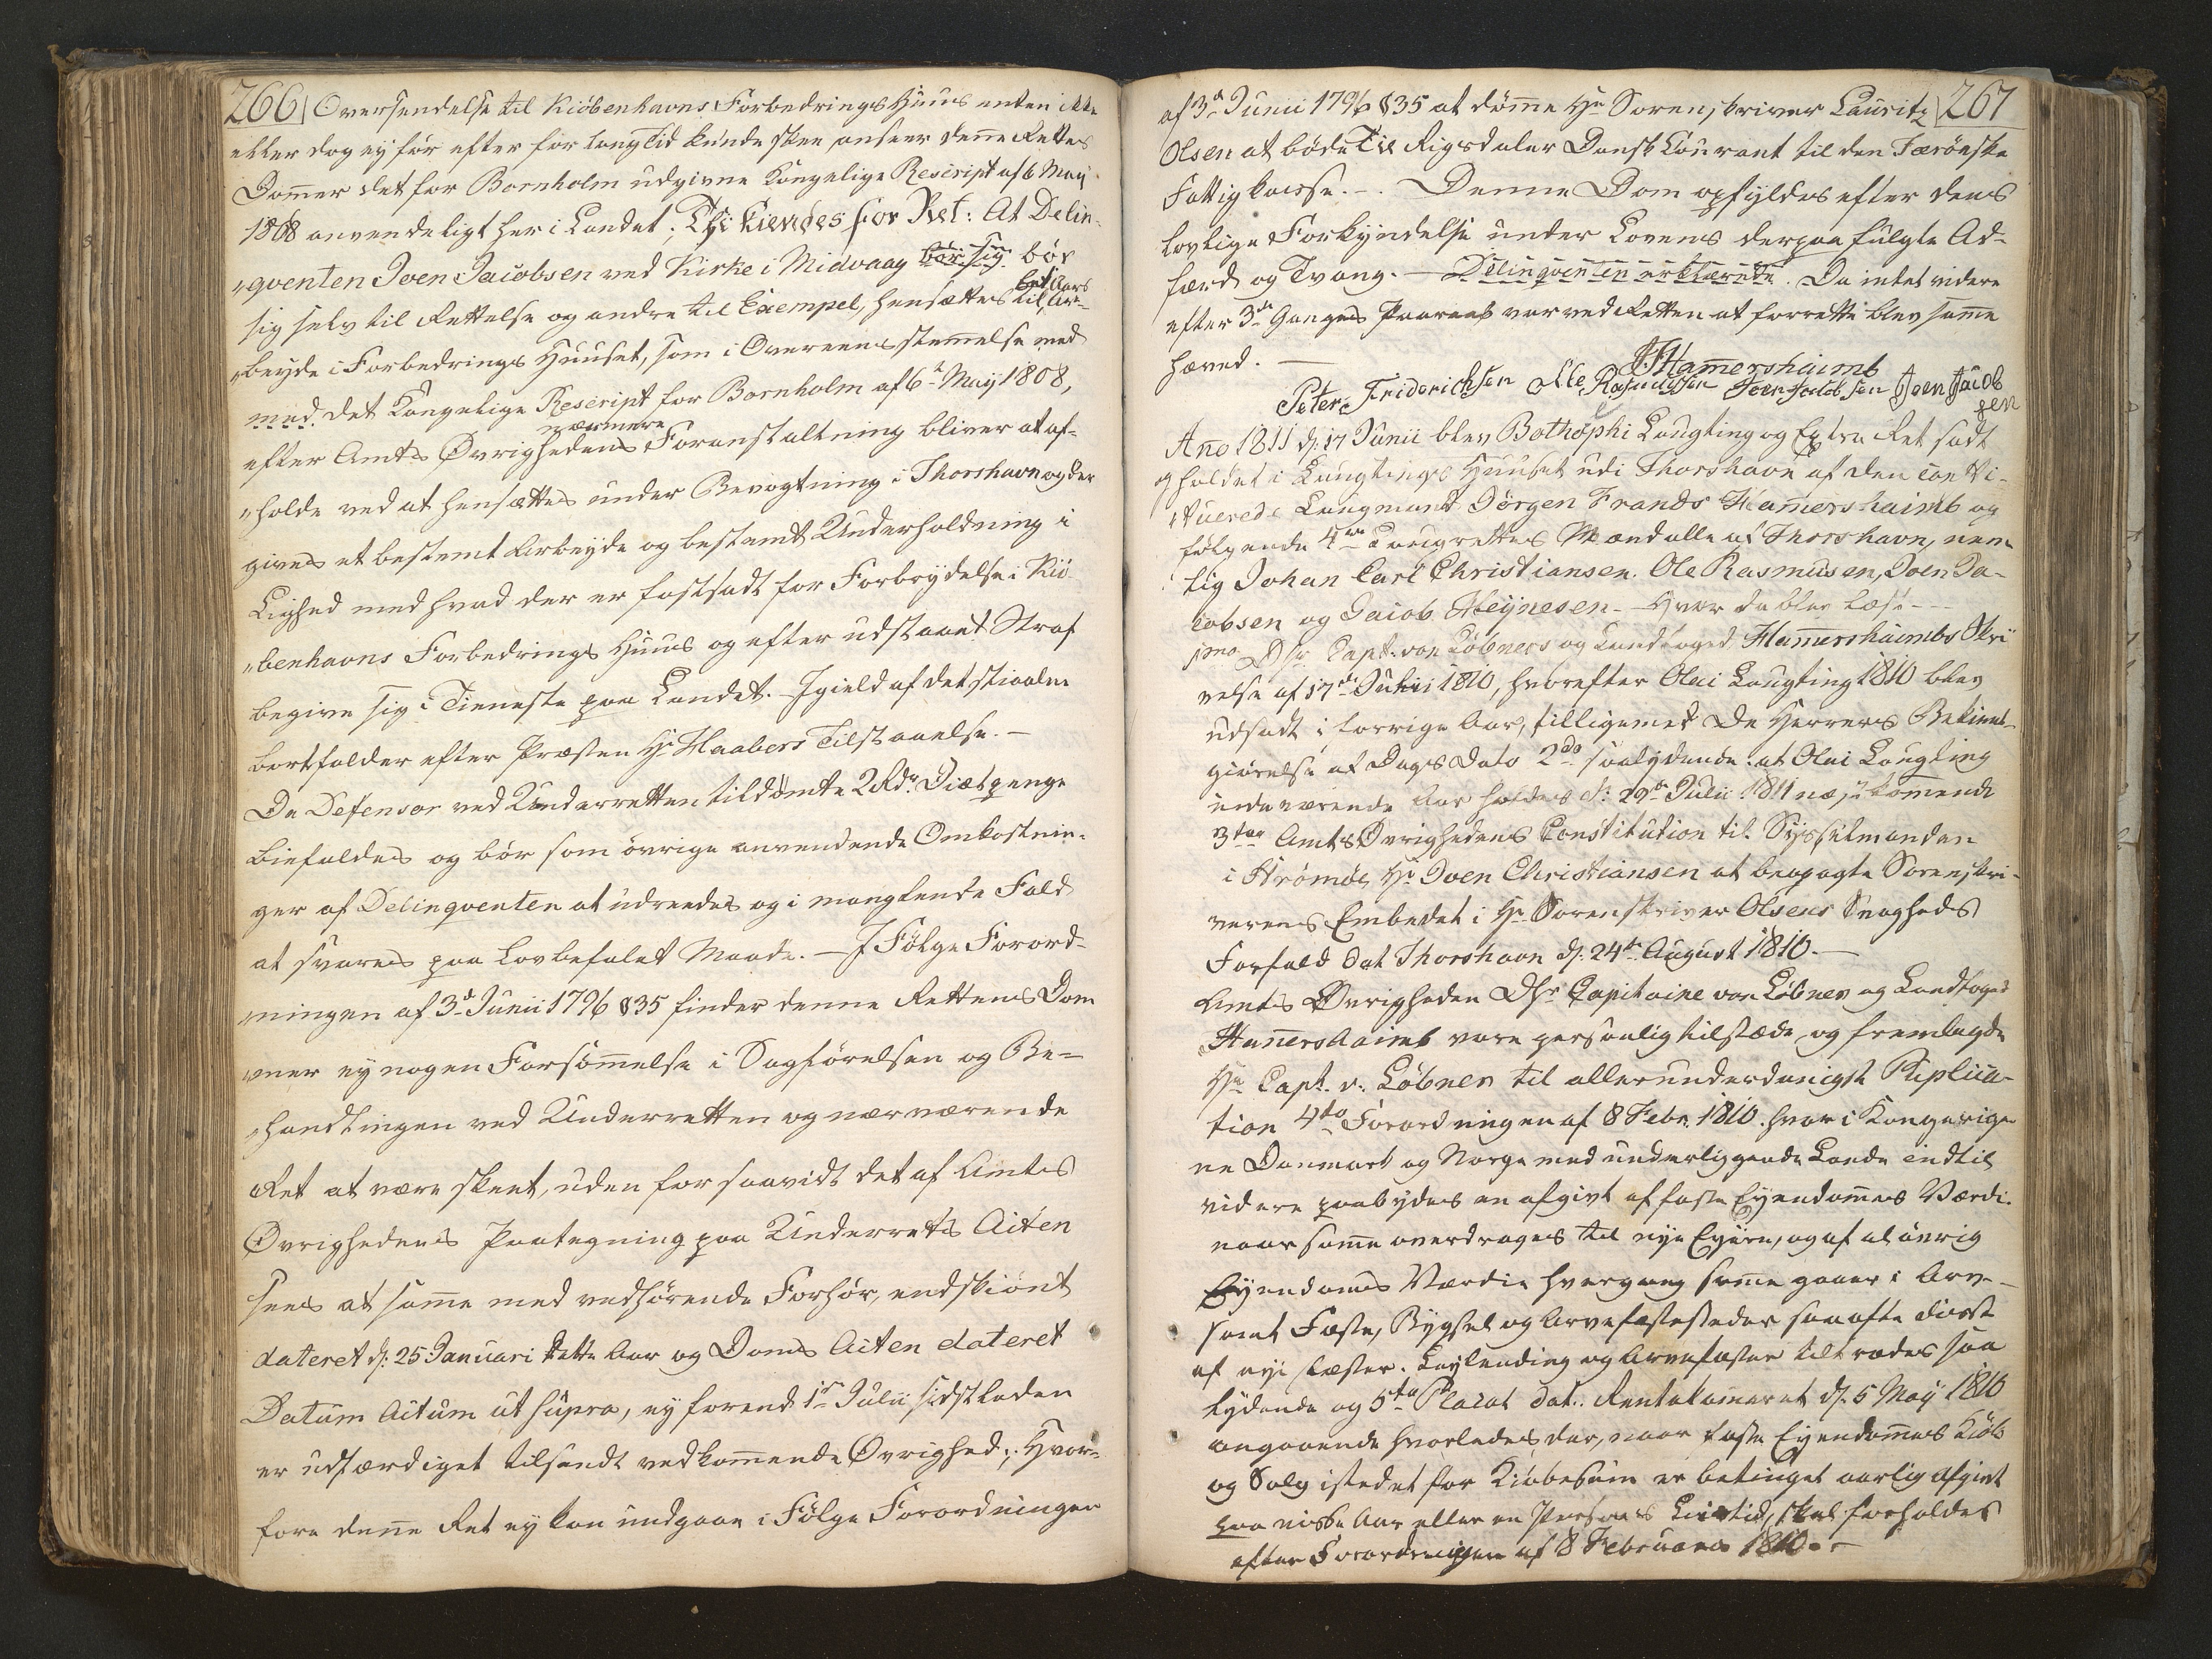 266
Oversendelse til Kiöbenhavns Forbedrings Huus enten ikke
eller dog ey för efter for lang Tid kunde skee anseer denne Rettes
Dommer det for Bornholm udgivne Kongelige Rescript af 6 May
1808 anvendeligt her i Landet; Thi kiendes for Ret: At Delin-
"qventen Joen Jacobsen ved Kirke i Midvaag bör sig bör
sig selv til Rettelse og andre til Exempel, hensættes til et Aars Ar-
"beyde i Forbedrings Huuset, som i Overeensstemmelse med
med det Kongelige Rescript for Bornholm af 6te May 1808,
efter Amts Øvrighedens nærmere Foranstaltning bliver at af-
"holde ved at hensættes under Bevogtning i Thorshavn og der
gives et bestemt Arbeyde og bestemt Underholdning i
Liighed med hvad der er fastsadt for Forbrydelse i Kiö-
"benhavns Forbedrings Huus og efter udstaaet Straf
begive sig i Tieneste paa Landet. Igield af det stiaalne
bortfalder efter Præsten Hr Haabers Tilstaaelse. —
De Defensor ved Underretten tildömte 2 Rdr Diætpenge
biefaldes og bör som övrige anvendende Omkostnin-
ger af Delinqventen at udreedes og i manglende Fald
at svares paa Lovbefalet Maade. — I Fölge Forord-
"ningen af 3d Junii 1796 § 35 finder denne Rettens Dom
"mer ey nogen Forsömmelse i Sagförelsen og Be-
"handlingen ved Underretten og nærværende
Ret at være skeet, uden forsaavidt det af Amts
Øvrighedens Paategning paa Underrets Acten
sees at samme med vedhörende Forhör, endskiönt
dateret d: 25 Januari dette Aar og Doms Acten dateret
Datum Actum ut supra, ey forend 1ste Julii sidstleden
er udfærdiget tilsendt vedkommende Øvrighed; Hvor-
fore denne Ret ey kan undgaae i Fölge Forordningen
267
af 3d Junii 1796 § 35 at dömme Hr Sorenskriver Lauritz
Olsen at böde Tie Rigsdaler Dansk Courant til den Færöeske
Fattigkasse. — Denne Dom opfyldes efter dens
lovlige Forkyndelse under Lovens derpaa fulgte Ad-
færd og Tvang. — Delinqventen erklærede. Da intet videre
efter 3de Ganges Paaraab var ved Retten at forrette blev samme
hæved. —
JFHamershaimb
Peter Friderichsen Ole Rasmussen Joen Jacobsen Joen Jacob
sen
Ano 1811 d: 17 Junii blev Bothophi Laugting og Extra Ret sadt
og holdet i Laugtings Huuset udi Thorshavn af den consti-
"tuerede Laugmand Jörgen Frands Hamershaimb og
fölgende 4re Laugrettes Mænd alle af Thorshavn, nem-
lig Johan Carl Christiansen, Ole Rasmussen, Joen Ja-
cobsen og Jacob Heÿnesen — Hvor da blev læst —
1mo D Hr Capt. von Löbners og Landfoged Hamershaimbs Skri-
velse af 17de Julii 1810, hvorefter Olai Laugting 1810 blev
udsadt i forrige Aar, tilligemed De Herrers Bekiendt-
giörelse af Dags Dato 2do saalydende: at Olai Laugting
indeværende Aar holdes d: 29de Julii 1811 næstkomende
3tio Amts Øvrighedens Constitution til Sysselmanden
i Strömöe Hr Joen Christiansen at beopagte Sorenskri-
verens Embedet i Hr Sorenskriver Olsens Svagheds
Forfald dat Thorshavn d: 24de August 1810. —
Amts Øvrigheden D Hr Capitaine von Löbner og Landfoged
Hamershaimb vare personlig tilstæde og fremlagde
Hr Capt. v. Löbner til allerunderdanigst Publica-
tion 4to Forordningen af 8 Febr. 1810. hvor i Kongerige-
ne Danmark og Norge med underliggende Lande indtil
videre paabydes en afgivt af faste Eyendommes Værdi
naar samme overdrages til nye Eyere, og af al övrig
Eyendoms Værdie hvergang samme gaaer i Arv —
samt Fæste, Bygsel og Arvefæstesteder saa ofte disse
af nye Fæster. Leylending og Arvefæster tiltrædes saa
lydende og 5to Placat dat. Rentekammeret d: 5 May 1810
angaaende hvorledes der, naar faste Eyendommes Kiöb
og Salg istedet for Kiöbesum er betinget aarlig afgivt
paa visse Aar eller en Persons Livstid, skal forholdes
efter Forordningen af 8 Februarii 1810. —